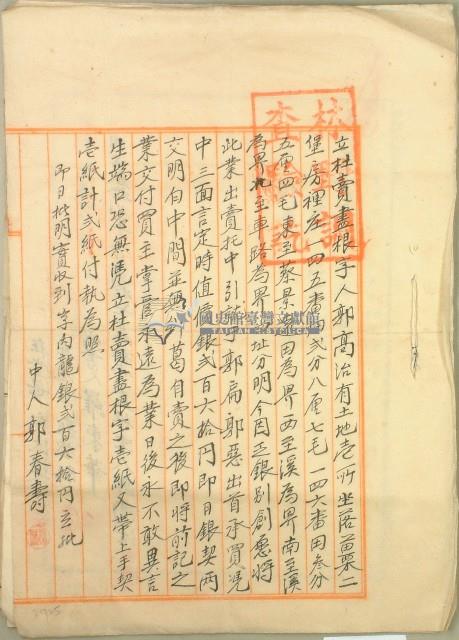 立杜賣盡根字人郭高治有土地壱所坐落苗栗二
堡房裡庄一四五番田弍分八厘七毛一四六番田叁分
五厘四毛東至蔡景田為界西至溪為界南至溪
為界北至車路為界址分明今因乏銀別創愿將
此業出賣托中引就于郭扁郭惡出首承買凭
中三面言定時值價銀弍百六拾円即日銀契兩
交明白中間並無糾葛自賣之後即將前記之
業交付買主掌管永遠為業日後永不敢異言
生端口恐無凭立杜賣盡根字壱紙又帶上手契
壱紙計弍紙付執為照
即日批明實收到字內龍銀弍百六拾円立批
中人郭春壽
國史館臺灣文獻館
TAIWAN HISTORICA